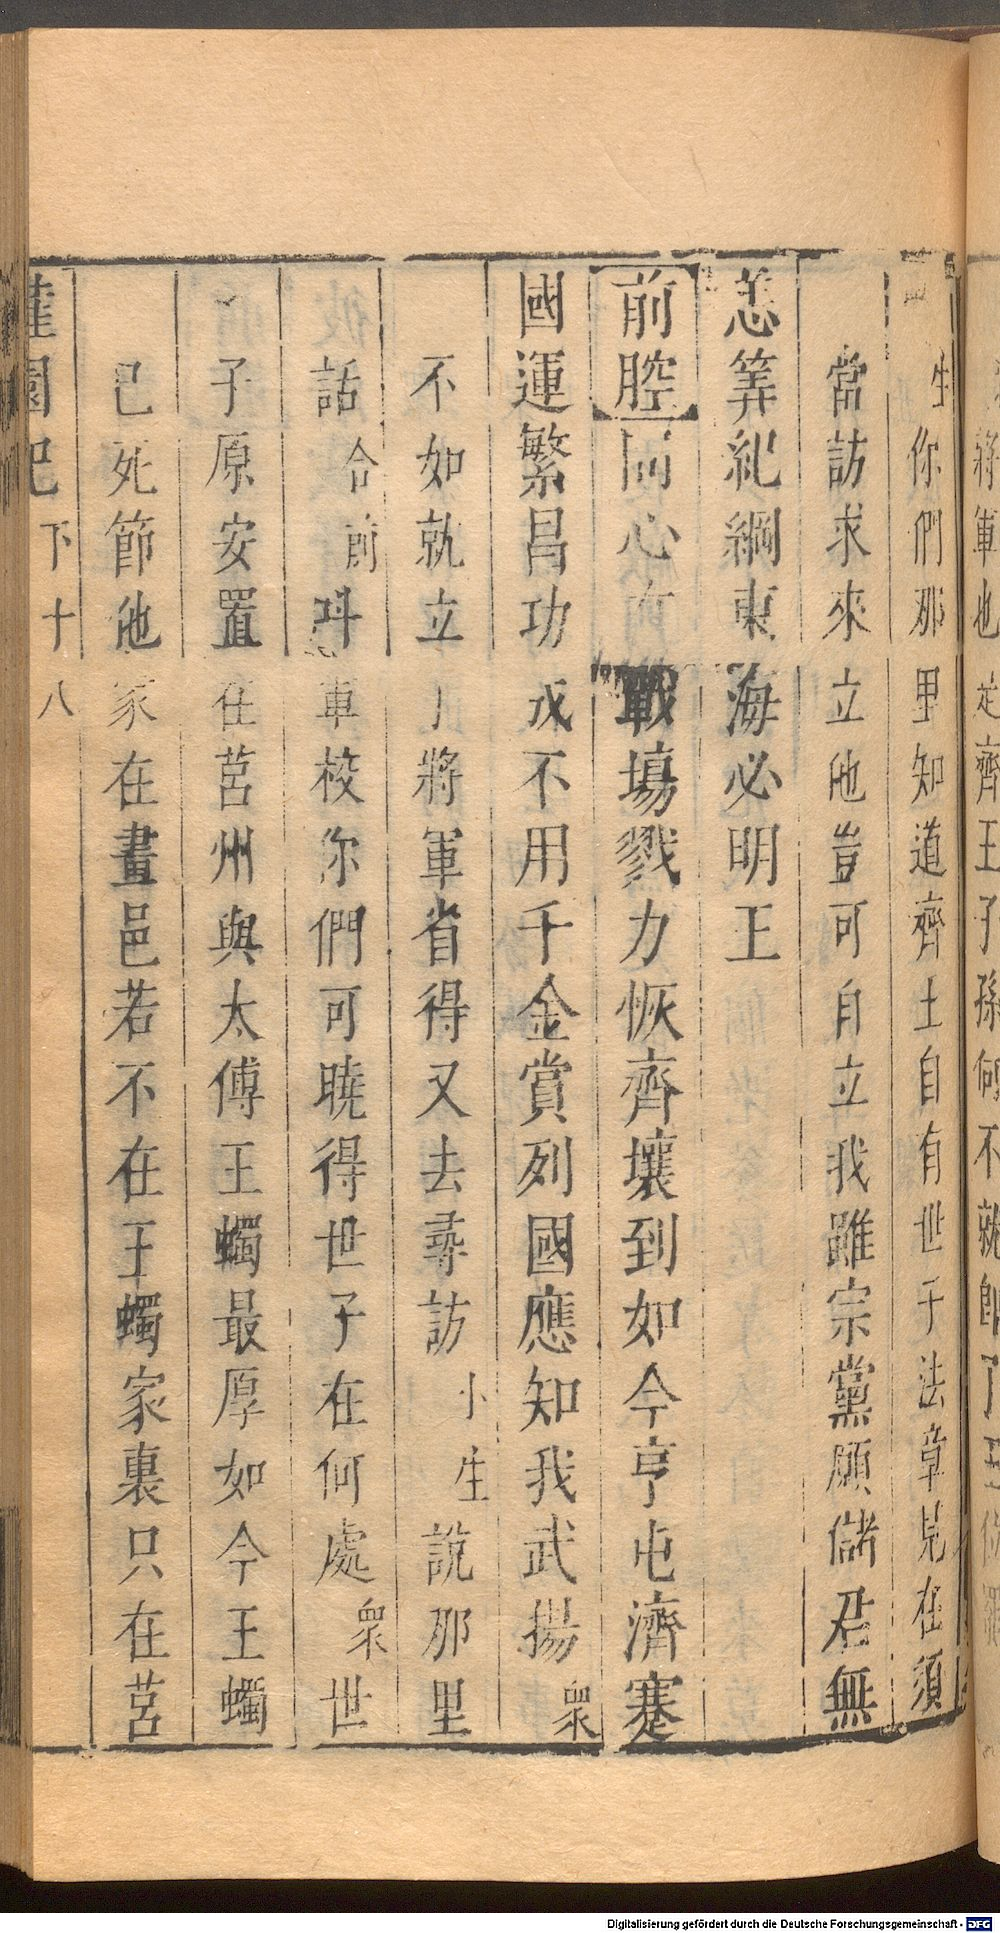 將軍也是齊王子孫何不就
生你們那里知道齊王自有世子法章見在須
當訪求來立他豈可自立我雖宗黨願儲君無
恙筭紀綱東海必明王
前腔同心有戰場戮力恢齊壤到如今亨屯濟蹇
國運繁昌功成不用千金賞列國應知我武揚衆
不如就立將軍省得又去尋訪小生說那里
話介前叫軍校你們可曉得世子在何處衆世
子原安置在莒州與太傅王蠋最厚如今王蠋
已死節他家在畫邑若不在王蠋家裏只在莒
園記 下 十八
Digitalisierung gefördert durch die Deutsche Forschungsgemeinschaft - DFG